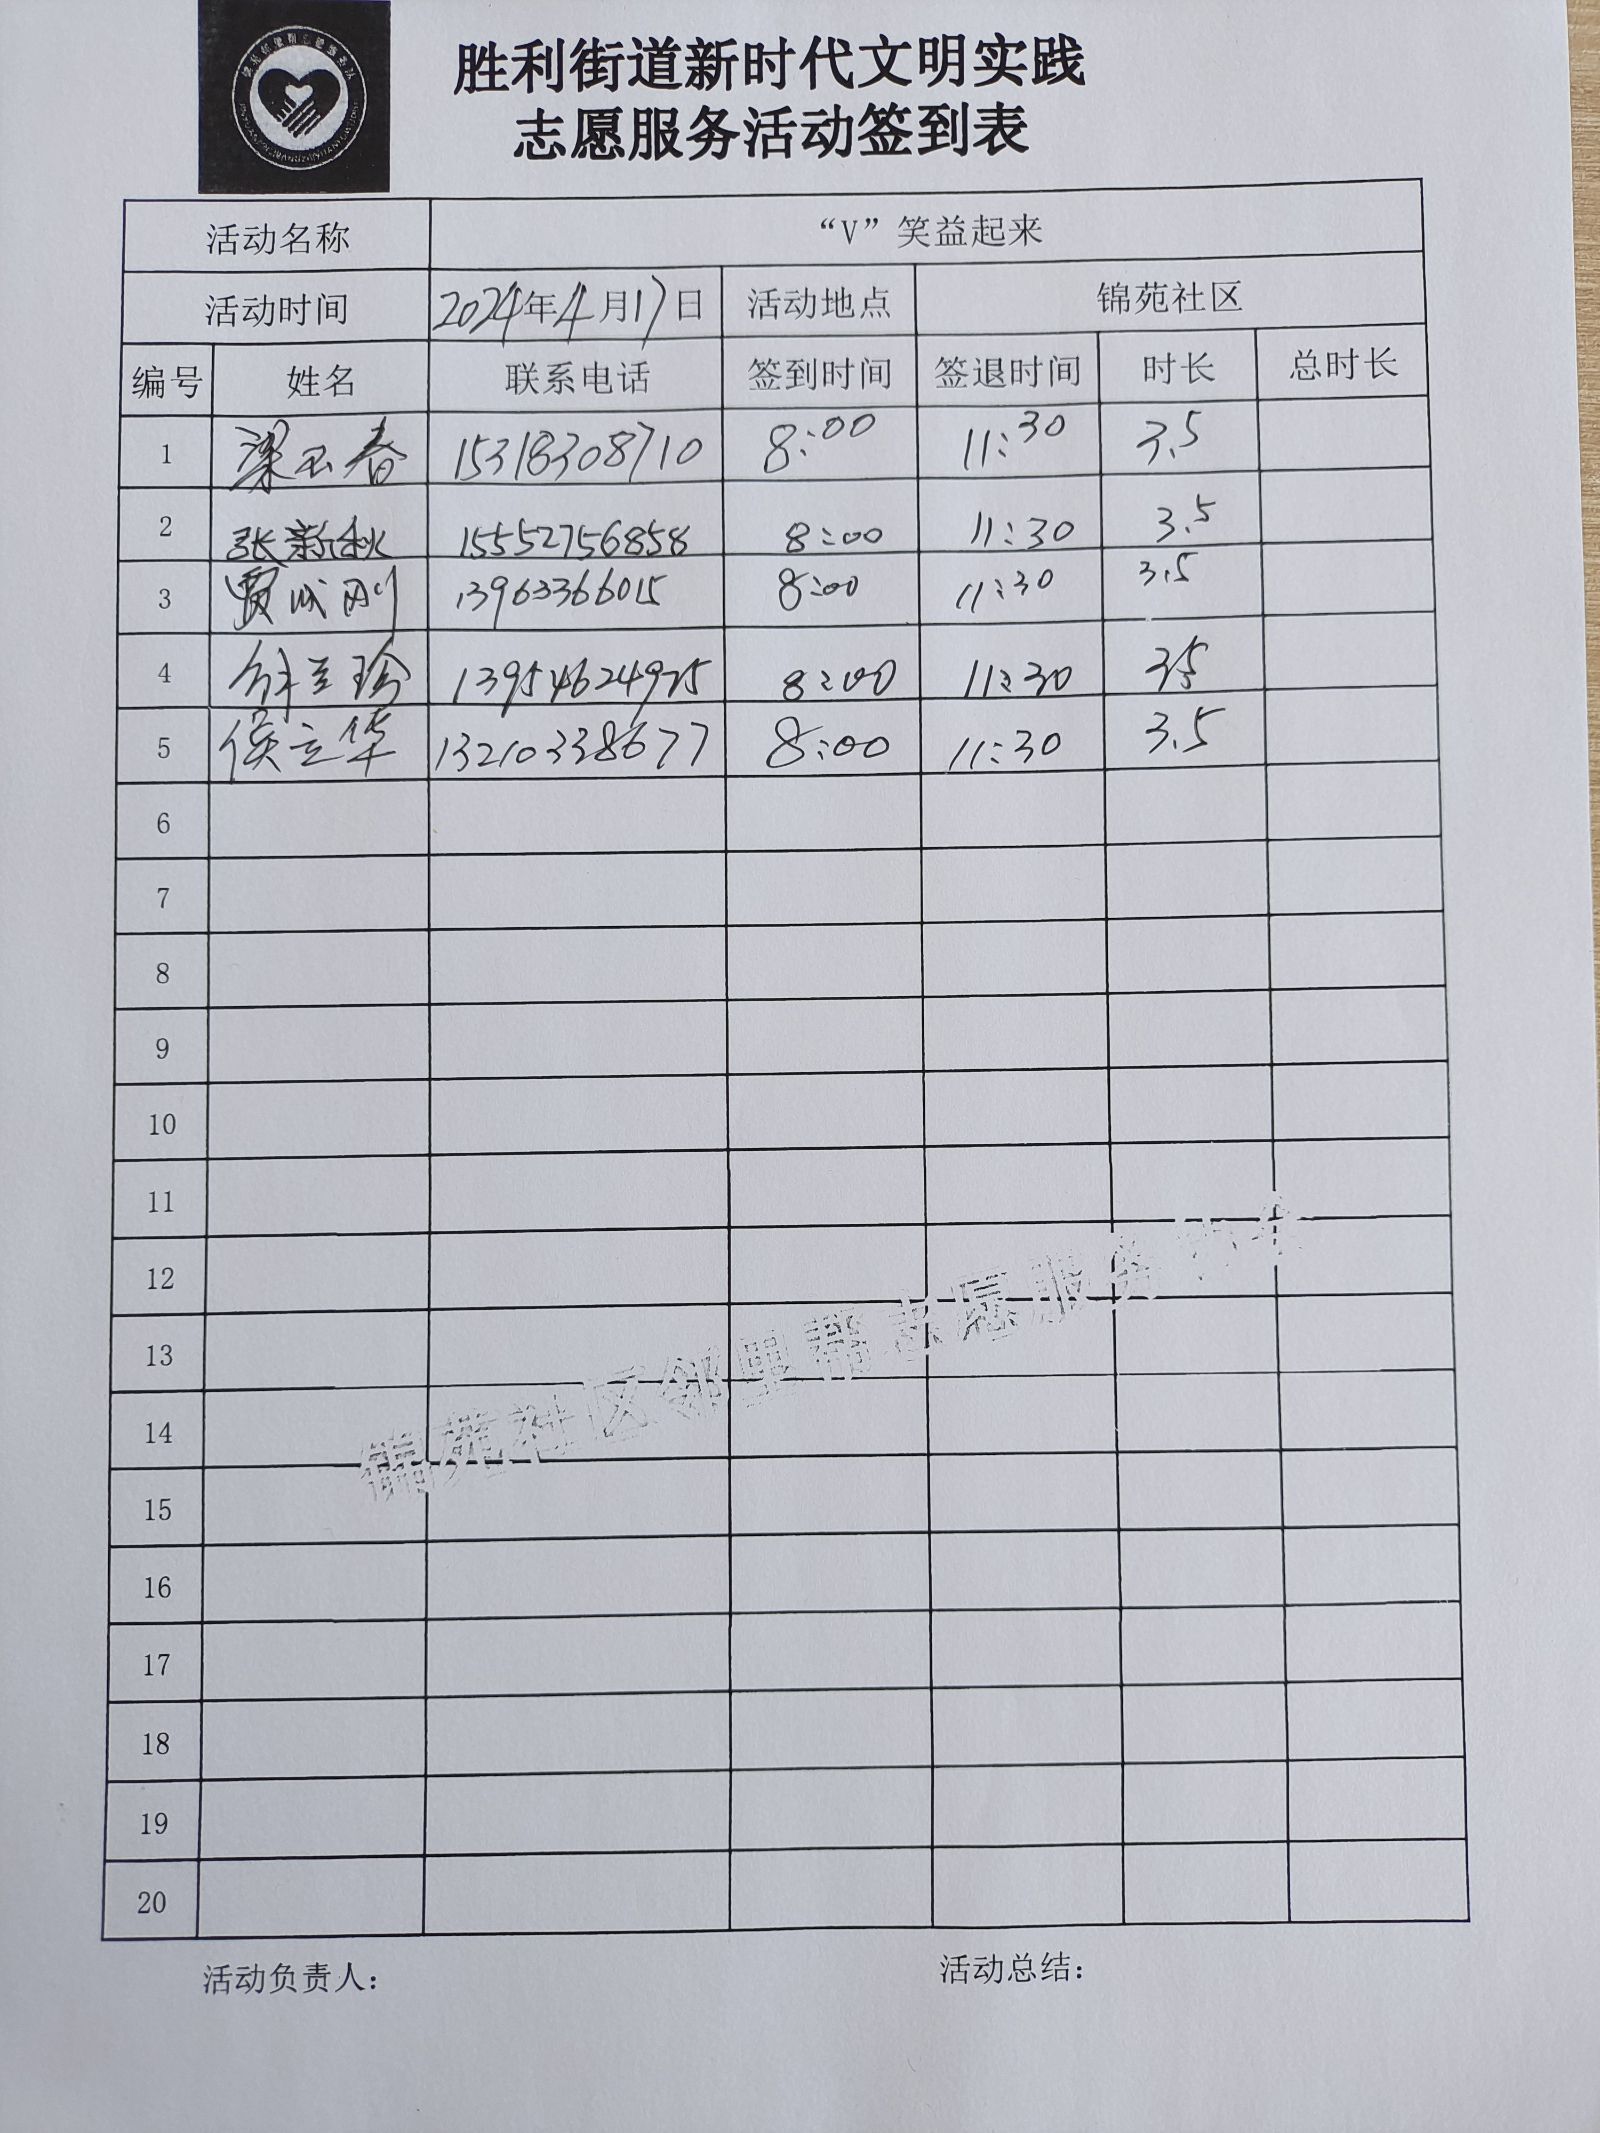 胜利街道新时代文明实践
志愿服务活动签到表
活动名称 “V”笑益起来
活动时间 2024年4月17日 活动地点 锦苑社区
编号 姓名 联系电话 签到时间 签退时间 时长 总时长
1 梁玉春 15318308710 8:00 11:30 3.5
2 张新秋 15552756858 8:00 11:30 3.5
3 贾成刚 13963366015 8:00 11:30 3.5
4 徐立珍 13954624975 8:00 11:30 3.5
5 侯立华 13210338677 8:00 11:30 3.5
6
7
8
9
10
11
12
13
锦苑社区邻里帮志愿服务
14
15
16
17
18
19
20
活动负责人： 活动总结：